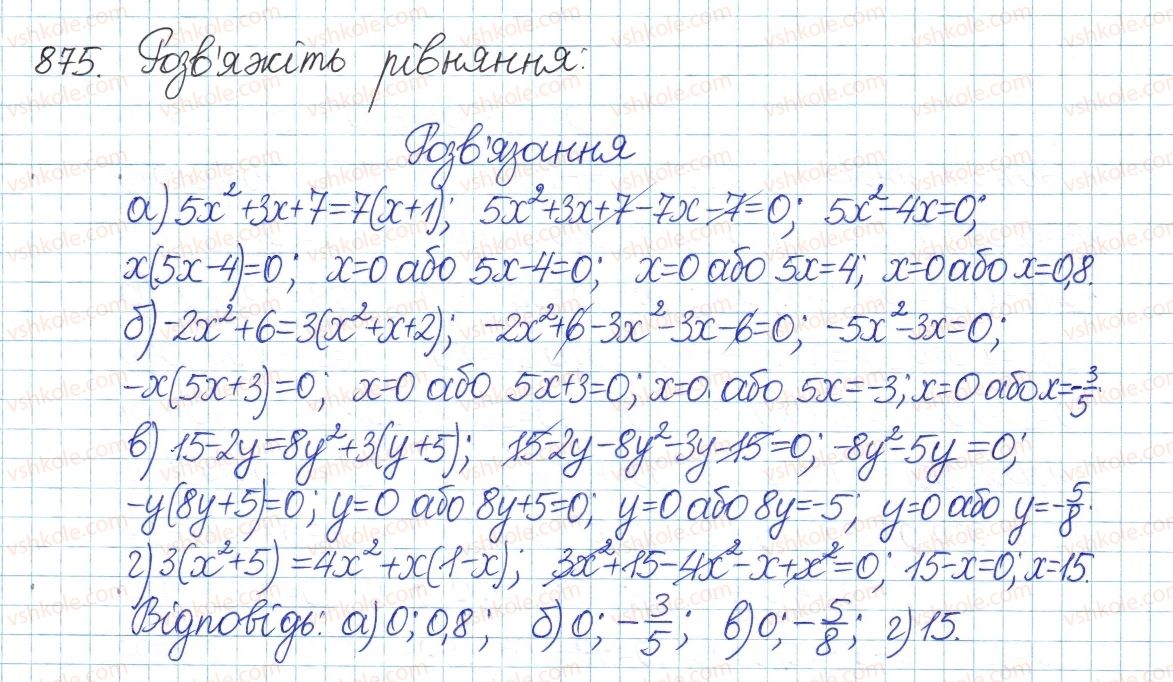 875. Розв'яжіть рівняння:
Розв'язання
а) 5x²+3x+7=7(x+1); 5x²+3x+7-7x-7=0; 5x²-4x=0;
x(5x-4)=0; x=0 або 5x-4=0; x=0 або 5x=4; x=0 або x=0,8.
б) -2x²+6=3(x²+x+2); -2x²+6-3x²-3x-6=0; -5x²-3x=0;
-x(5x+3)=0; x=0 або 5x+3=0; x=0 або 5x=-3; x=0 або x=-3/5.
в) 15-2y=8y²+3(y+5); 15-2y-8y²-3y-15=0; -8y²-5y=0;
-y(8y+5)=0; y=0 або 8y+5=0; y=0 або 8y=-5; y=0 або y=-5/8.
г) 3(x²+5)=4x²+x(1-x); 3x²+15-4x²-x+x²=0; 15-x=0; x=15.
Відповідь: а) 0; 0,8; б) 0; -3/5; в) 0; -5/8; г) 15.